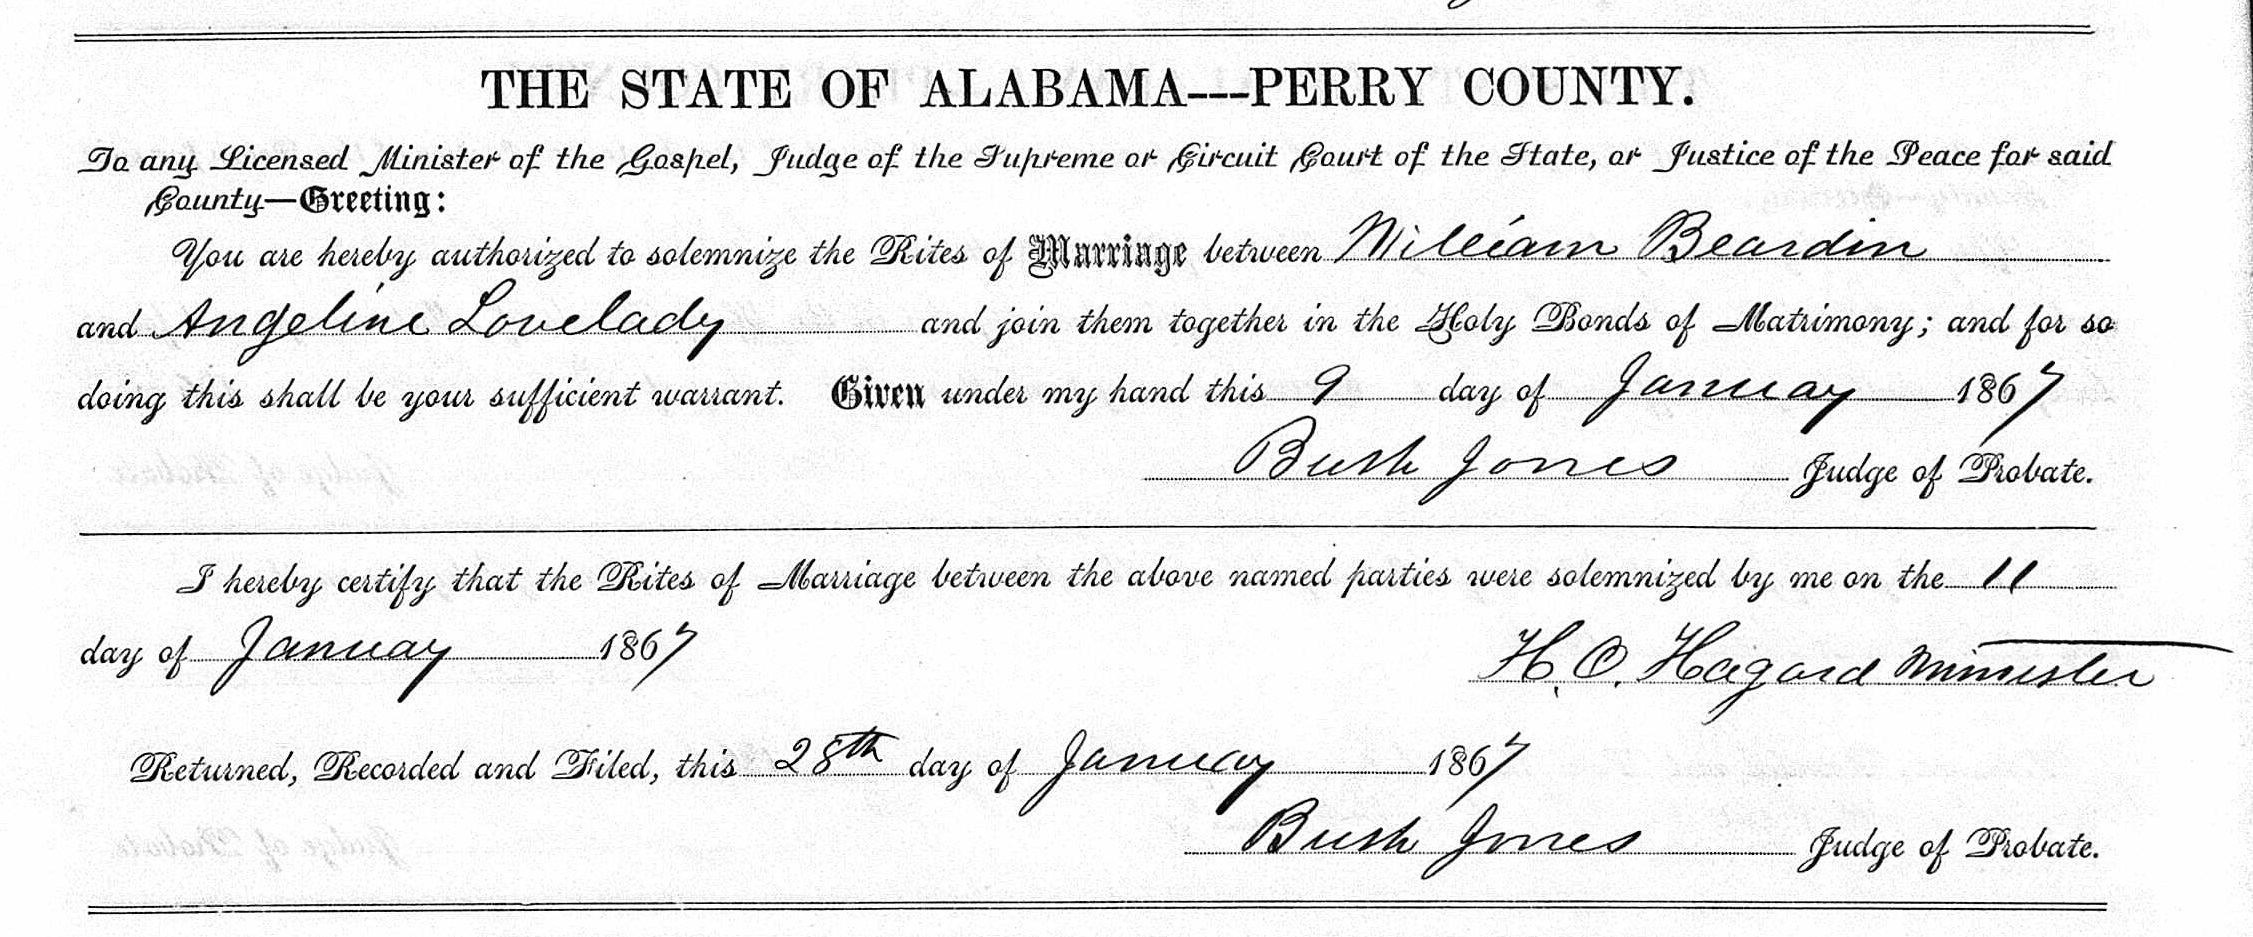 THE STATE OF ALABAMA---PERRY COUNTY.
To any Licensed Minister of the Gospel, Judge of the Supreme or Circuit Court of the State, or Justice of the Peace for said
County—Greeting:
You are hereby authorized to solemnize the Rites of Marriage between William Beardin
and Angeline Lovelady and join them together in the Holy Bonds of Matrimony; and for so
doing this shall be your sufficient warrant. Given under my hand this 9 day of January 1867
Bush Jones Judge of Probate.
I hereby certify that the Rites of Marriage between the above named parties were solemnized by me on the 11
day of January 1867
H. O. Hagard Minister
Returned, Recorded and Filed, this 28th day of January 1867
Bush Jones Judge of Probate.